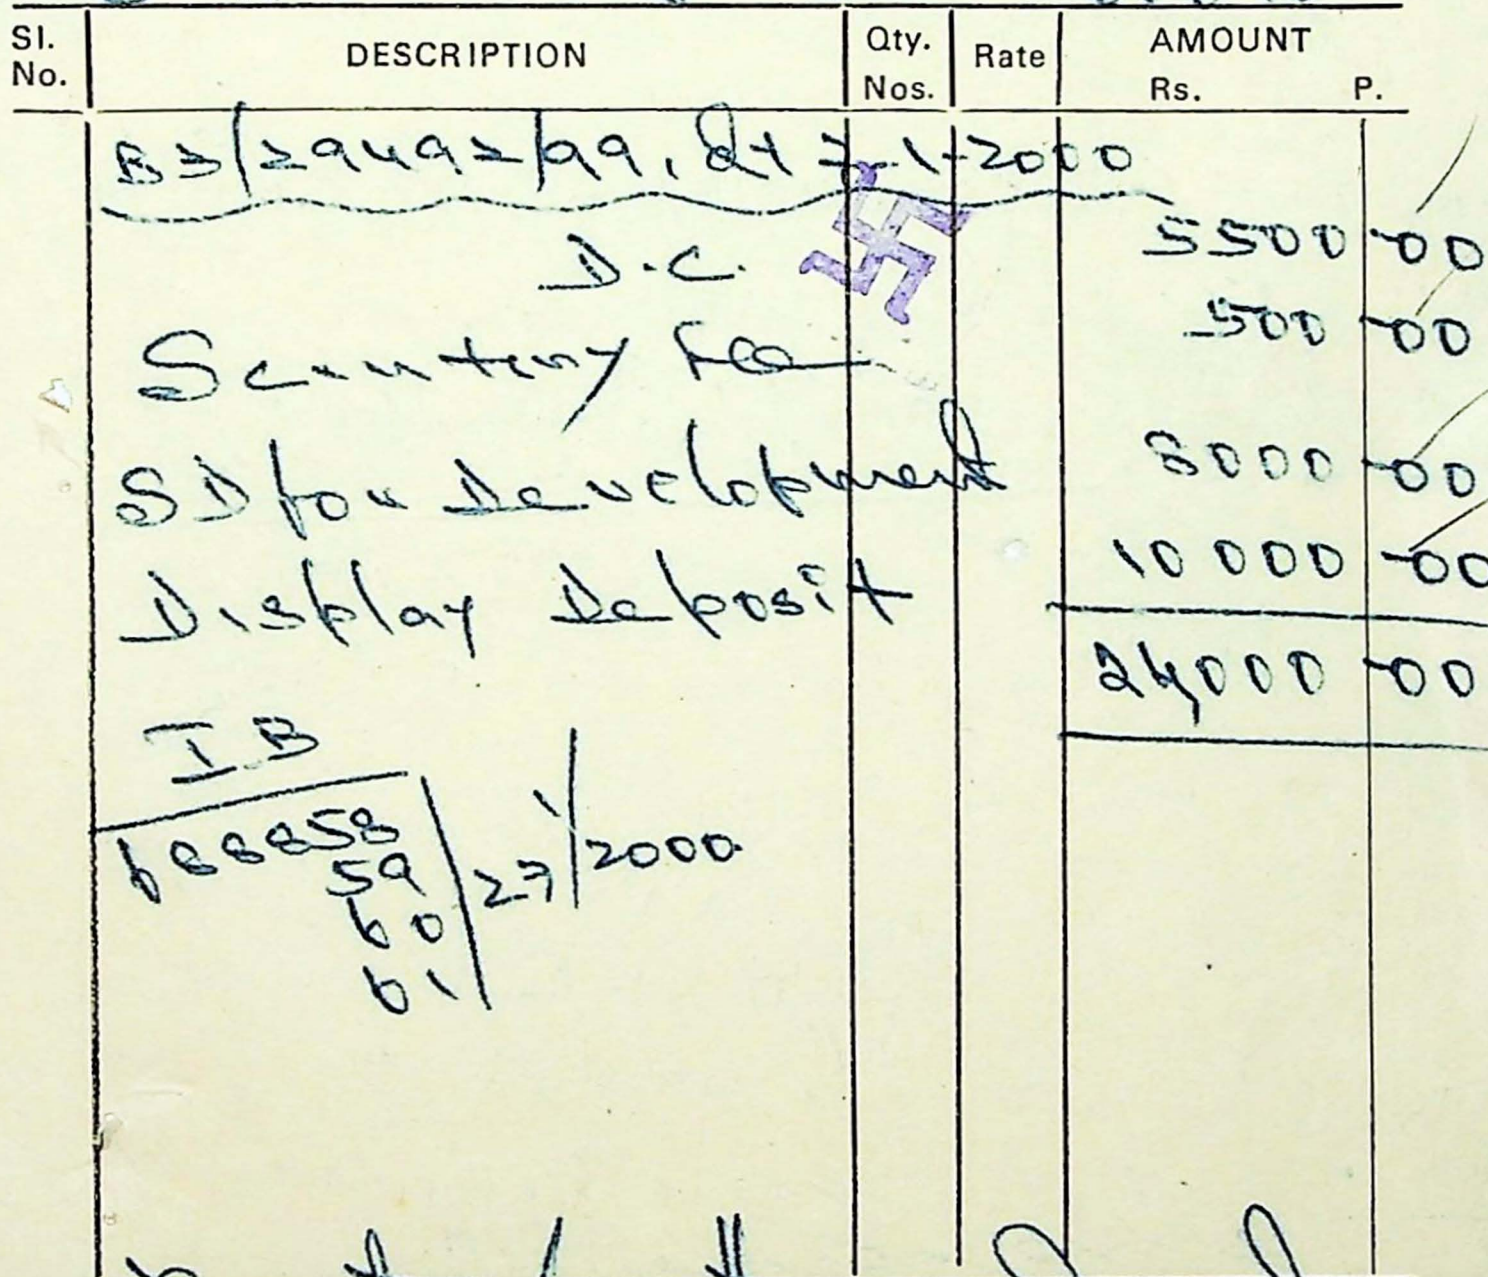 Sl. No. DESCRIPTION Qty. Nos. Rate AMOUNT Rs. P.
B3/29492/99, dt 7-1-2000
D.C. 5500-00
Scrutiny Fee 500-00
SD for Development 8000-00
Display Deposit 10000-00
24,000-00
I.B
688858
59
60
61
27/1/2000